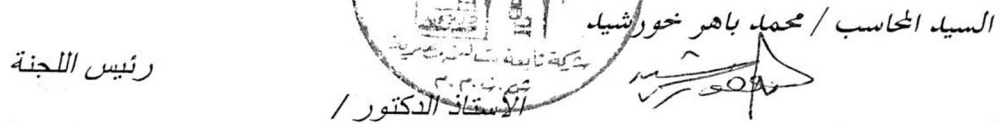 السيد المحاسب / محمد باهر خورشيد
رئيس اللجنة
الأستاذ الدكتور /